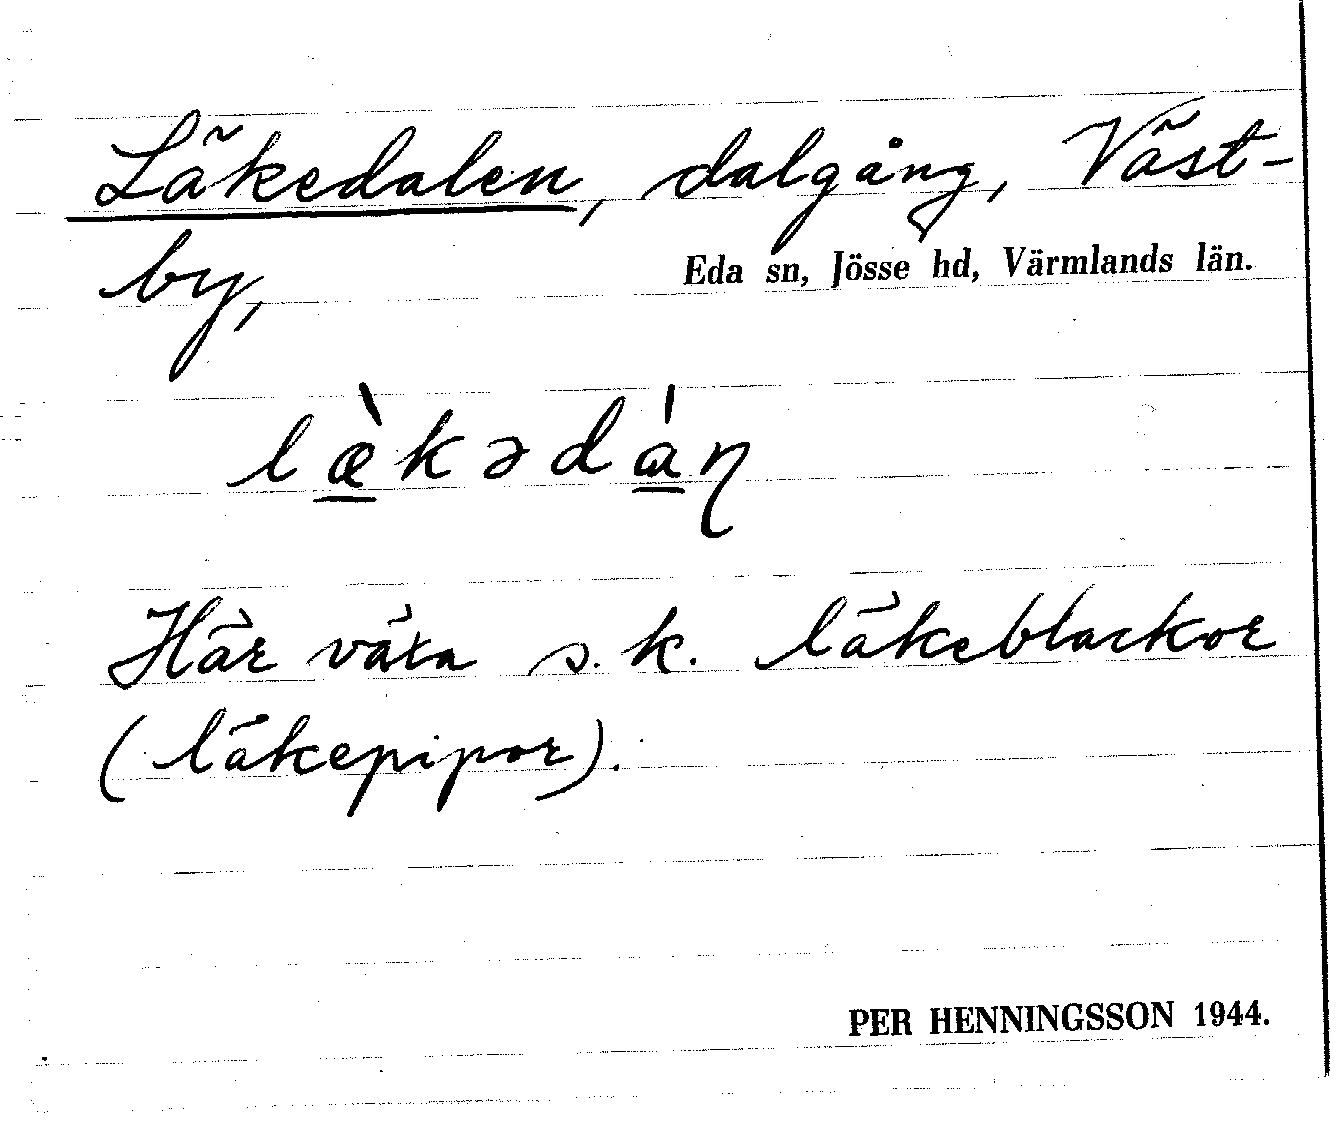 Läkedalen, dalgång, Väst-
by,
Eda sn, Jösse hd, Värmlands län.
læ̱̀kədɑ̱́ɳ
Här växa s.k. läkeblackor
(läkepipor).
PER HENNINGSSON 1944.